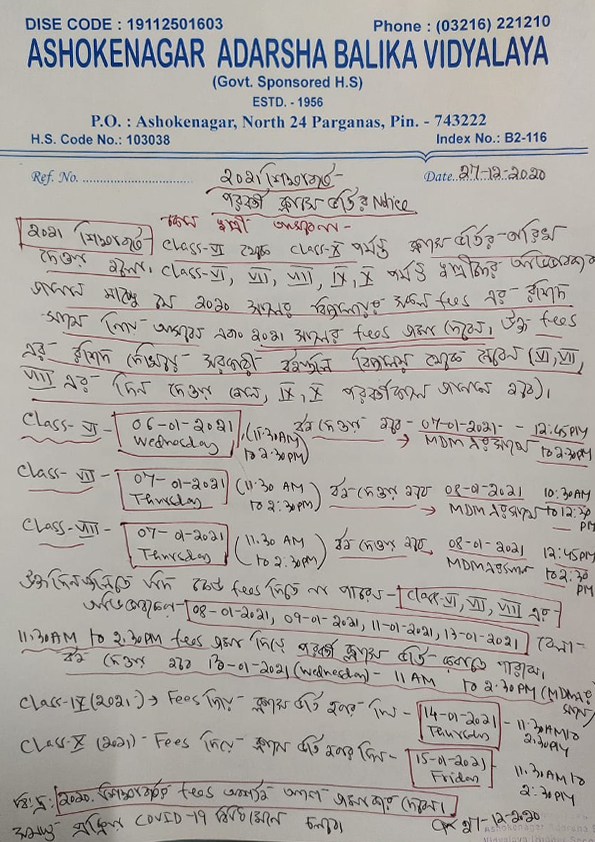 DISE CODE : 19112501603 Phone : (03216) 221210
ASHOKENAGAR ADARSHA BALIKA VIDYALAYA
(Govt. Sponsored H.S)
ESTD. - 1956
P.O. : Ashokenagar, North 24 Parganas, Pin. - 743222
H.S. Code No.: 103038 Index No.: B2-116
Ref. No. Date. 27-12-2020
২০২১ শিক্ষাবর্ষে-
পরবর্তী ক্লাসে ভর্তির Notice
২০২১ শিক্ষাবর্ষে- Class-VI থেকে Class-X পর্যন্ত ক্লাসে ভর্তির-তারিখ
দেওয়া হলো। Class-VI, VII, VIII, IX, X পর্যন্ত
২০২০ সালের বিদ্যালয়ের fees এর রশিদ
এবং ২০২১ সালের fees জমা দেবেন। উক্ত fees
এর রশিদ দেখিয়ে সরকারী বইগুলি বিদ্যালয় থেকে নেবেন (VI, VII,
VIII এর দিন দেওয়া হলো, IX, X পরবর্তীকালে জানানো হবে)।
Class-VI- 06-01-2021 Wednesday (11:30AM to 2:30PM) বই দেওয়া হবে- 07-01-2021- 12:45PM to 2:30PM
Class-VII- 07-01-2021 Thursday (11:30 AM to 2:30PM) বই দেওয়া হবে 08-01-2021 10:30AM to 12:30 PM
Class-VIII- 07-01-2021 Thursday (11.30 AM to 2:30PM) বই দেওয়া হবে 08-01-2021 12:45PM to 2:30 PM
উক্ত দিনগুলিতে যদি কেউ fees দিতে না পারেন- Class-VI, VII, VIII এর
08-01-2021, 09-01-2021, 11-01-2021, 13-01-2021 বেলা-
11:30AM to 2:30PM fees জমা দিয়ে পরবর্তী ক্লাসে ভর্তি করাতে পারেন।
বই দেওয়া হবে 13-01-2021 (Wednesday)- 11AM to 2:30PM
Class-IX (2021)→ Fees দিয়ে- ক্লাসে ভর্তি হবার দিন- 14-01-2021 Thursday - 11:30AM to 2:30PM
Class-X (2021)- Fees দিয়ে- ক্লাসে ভর্তি হবার দিন- 15-01-2021 Friday - 11:30AM to 2:30PM
বিঃদ্রঃ 2020 শিক্ষাবর্ষের fees
COVID-19 বিধি মেনে 27-12-2020